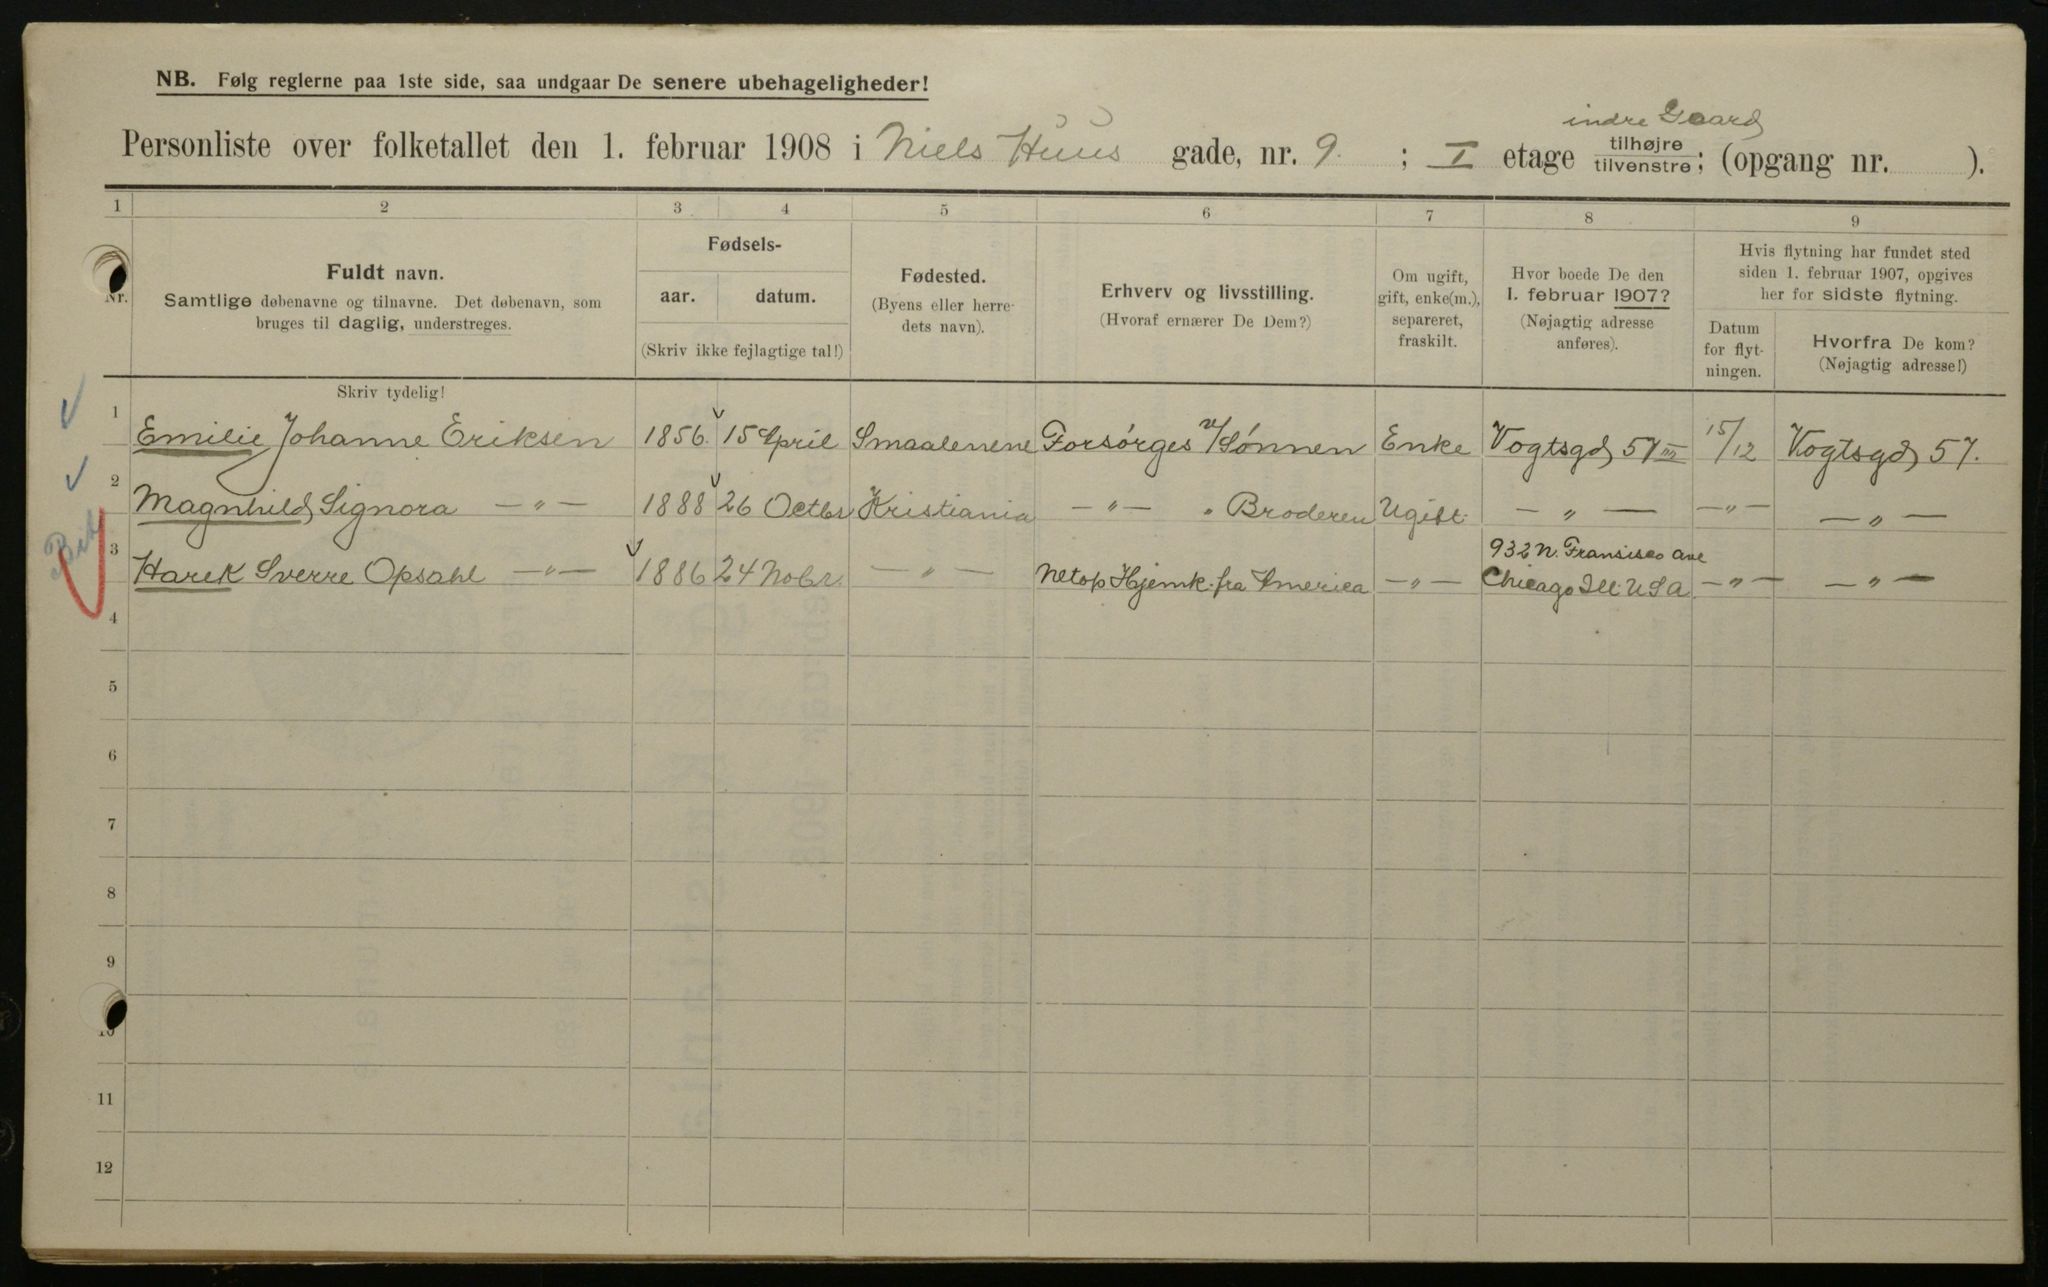 NB. Følg reglerne paa 1ste side, saa undgaar De senere ubehageligheder!
indre Gaard
Personliste over folketallet den 1. februar 1908 i Niels Huus gade, nr. 9. ; I etage tilhøjre tilvenstre; (opgang nr. ).
1 2 3 4 5 6 7 8 9
Nr.
Fuldt navn.
Samtlige døbenavne og tilnavne. Det døbenavn, som
bruges til daglig, understreges.
Fødsels-
aar. datum.
(Skriv ikke fejlagtige tal!)
Fødested.
(Byens eller herre-
dets navn).
Erhverv og livsstilling.
(Hvoraf ernærer De Dem?)
Om ugift,
gift, enke(m.),
separeret,
fraskilt.
Hvor boede De den
1. februar 1907?
(Nøjagtig adresse
anføres).
Hvis flytning har fundet sted
siden 1. februar 1907, opgives
her for sidste flytning.
Datum
for flyt-
ningen.
Hvorfra De kom?
(Nøjagtig adresse!)
Skriv tydelig!
1 Emilie Johanne Eriksen 1856. 15 April Smaalenene Forsørges v/Sønnen Enke Vogtsgd 57 III 15/12 Vogtsgd 57.
2 Magnhild Signora —"— 1888 26 Octbr Kristiania —"— " Broderen Ugift —"— —"— —"—
932 N. Fransisco Ave
3 Harek Sverre Opsahl —"— 1886 24 Nobr. —"— Netop Hjemk. fra America —"— Chicago Ill. USA —"— —"—
4
5
6
7
8
9
10
11
12